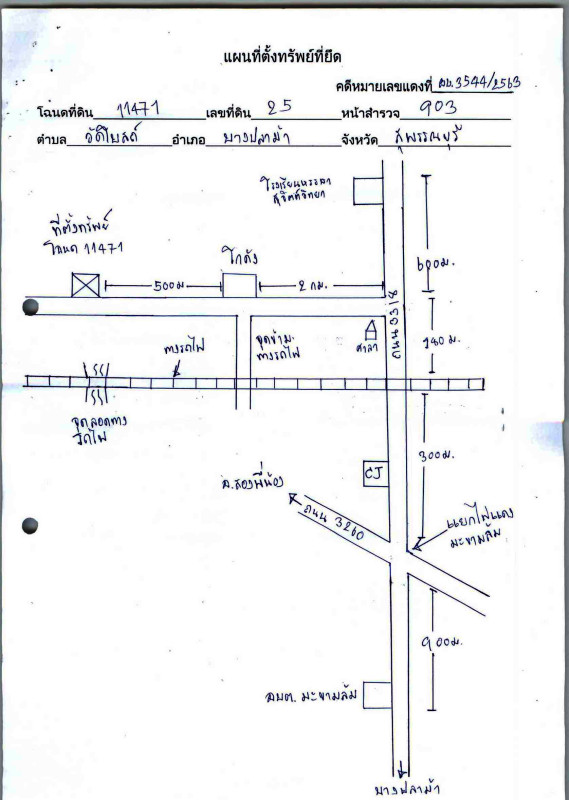 แผนที่ตั้งทรัพย์ที่ยึด
คดีหมายเลขแดงที่ ผบ.3544/2563
โฉนดที่ดิน 11471 เลขที่ดิน 25 หน้าสำรวจ 903
ตำบล วัดโบสถ์ อำเภอ บางปลาม้า จังหวัด สุพรรณบุรี
โรงเรียนบรรหาร
ที่ตั้งทรัพย์
โฉนด 11471
โกดัง
600ม.
500ม
2 กม.
ถนน 3318
ทางรถไฟ
จุดข้าม
ทางรถไฟ
ศาลา
140 ม.
จุดลอดทาง
รถไฟ
300ม.
CJ
อ.สองพี่น้อง
ถนน 3260
แยกไฟแดง
มะขามล้ม
900ม.
อบต. มะขามล้ม
บางปลาม้า